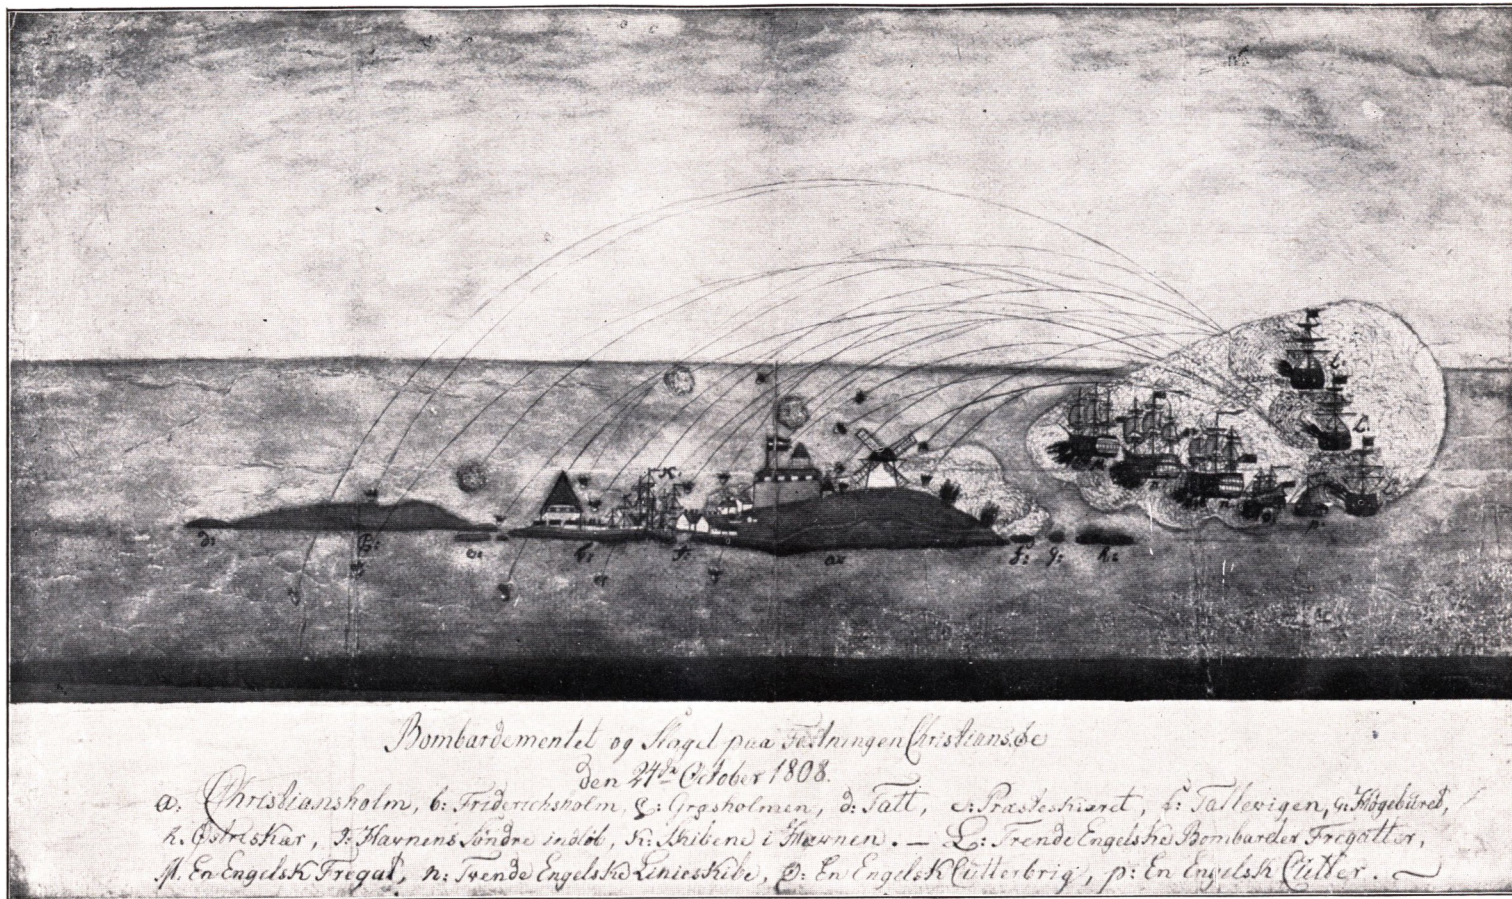 d:
B:
e:
C:
I:
a:
f:
g:
h:
K:
L:
n:
o:
p:
Bombardementet og Slaget paa Festningen Christiansöe
den 24de October 1808.
a: Christiansholm, b: Friderichsholm, c: Græsholmen, d: Tatt, e: Præsteskiæret, f: Tallevigen, g: Högebüret,
h: Østreskiær, I: Havnens Söndre indlöb, K: Skibene i Hawnen. — L: Trende Engelske Bombarder Fregatter,
M. En Engelsk Fregat, n: Tvende Engelske Linieskibe, O: En Engelsk Cutterbrig, p: En Engelsk Cutter.